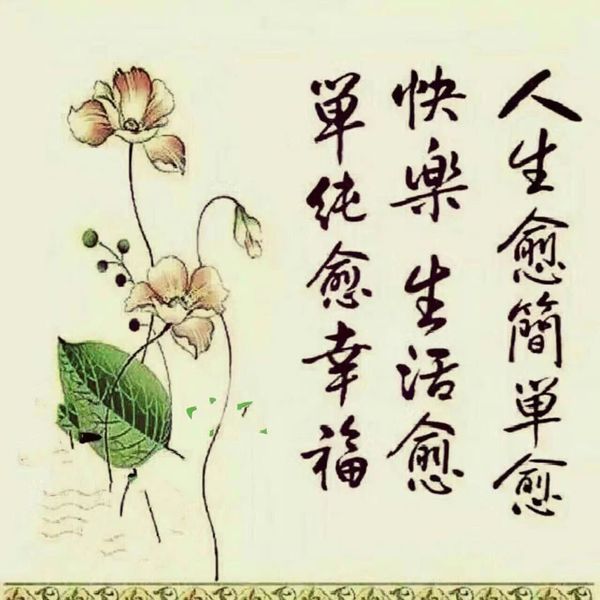 人生愈簡単愈
快楽生活愈
単纯愈幸福